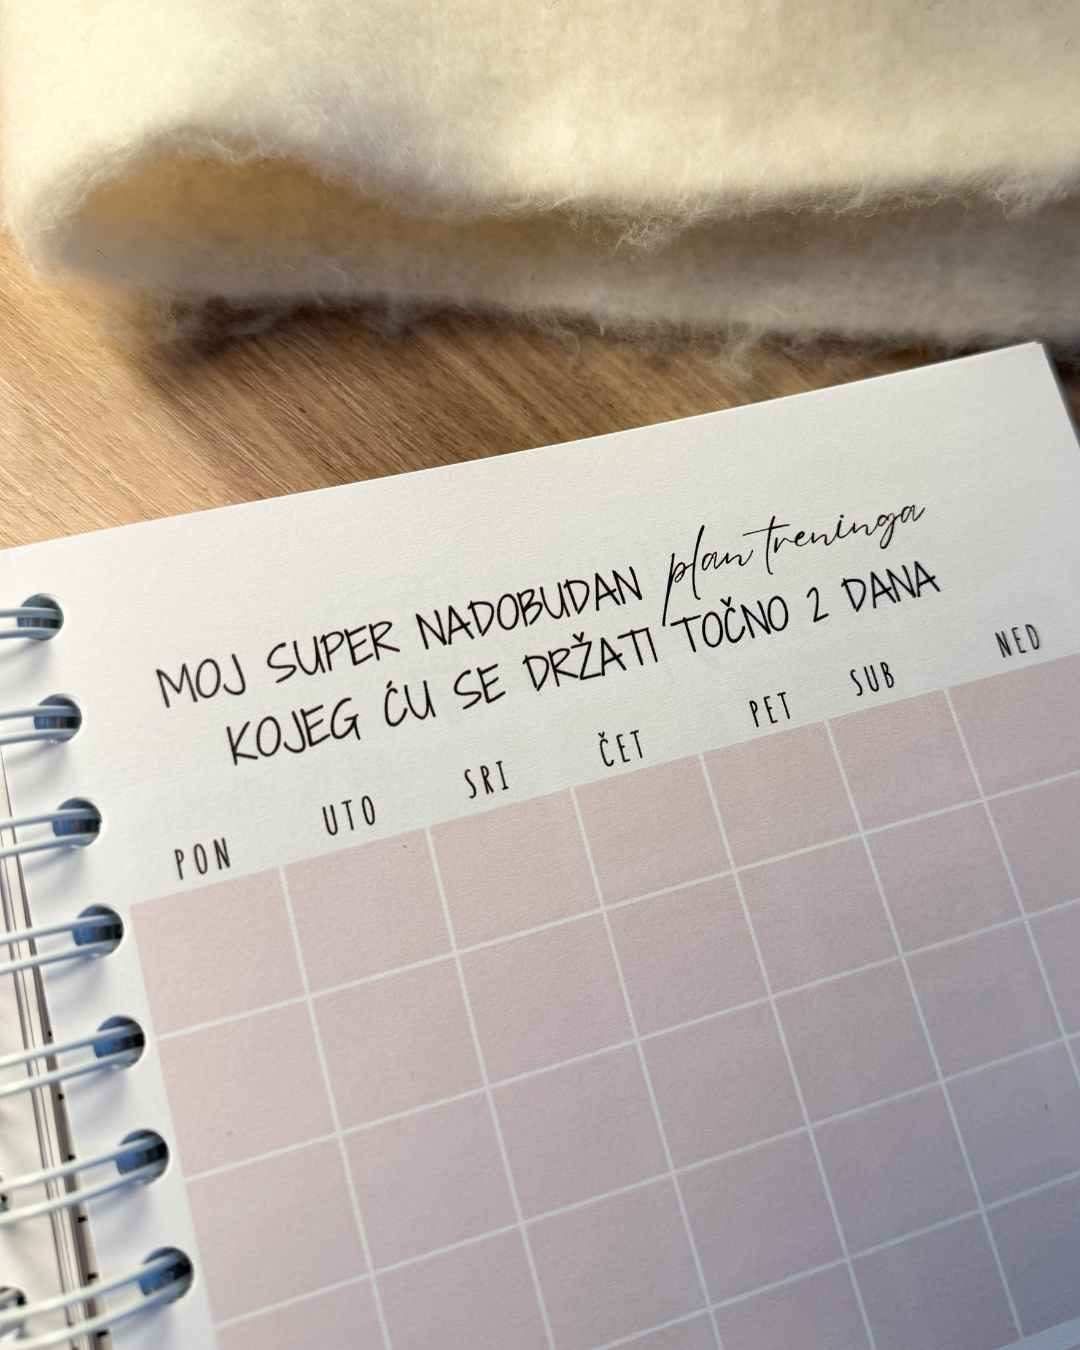 MOJ SUPER NADOBUDAN plan treninga
KOJEG ĆU SE DRŽATI TOČNO 2 DANA
PON UTO SRI ČET PET SUB NED